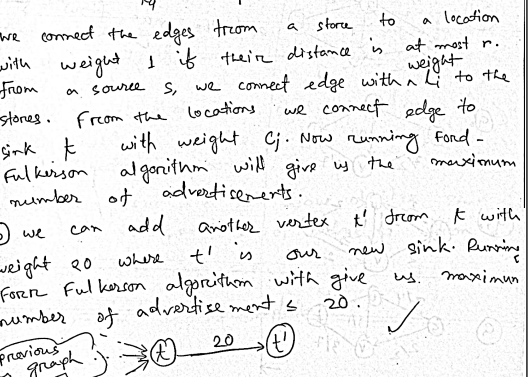 we connect the edges from a store to a location
with weight 1 if their distance is at most r.
From a source s, we connect edge with weight Li to the
stores. From the locations we connect edge to
sink t with weight Cj. Now running Ford-
Fulkerson algorithm will give us the maximum
number of advertisements.
we can add another vertex t' from t with
weight 20 where t' is our new sink. Running
Ford Fulkerson algorithm with give us maximum
number of advertisement ≤ 20.
previous graph t 20 t'